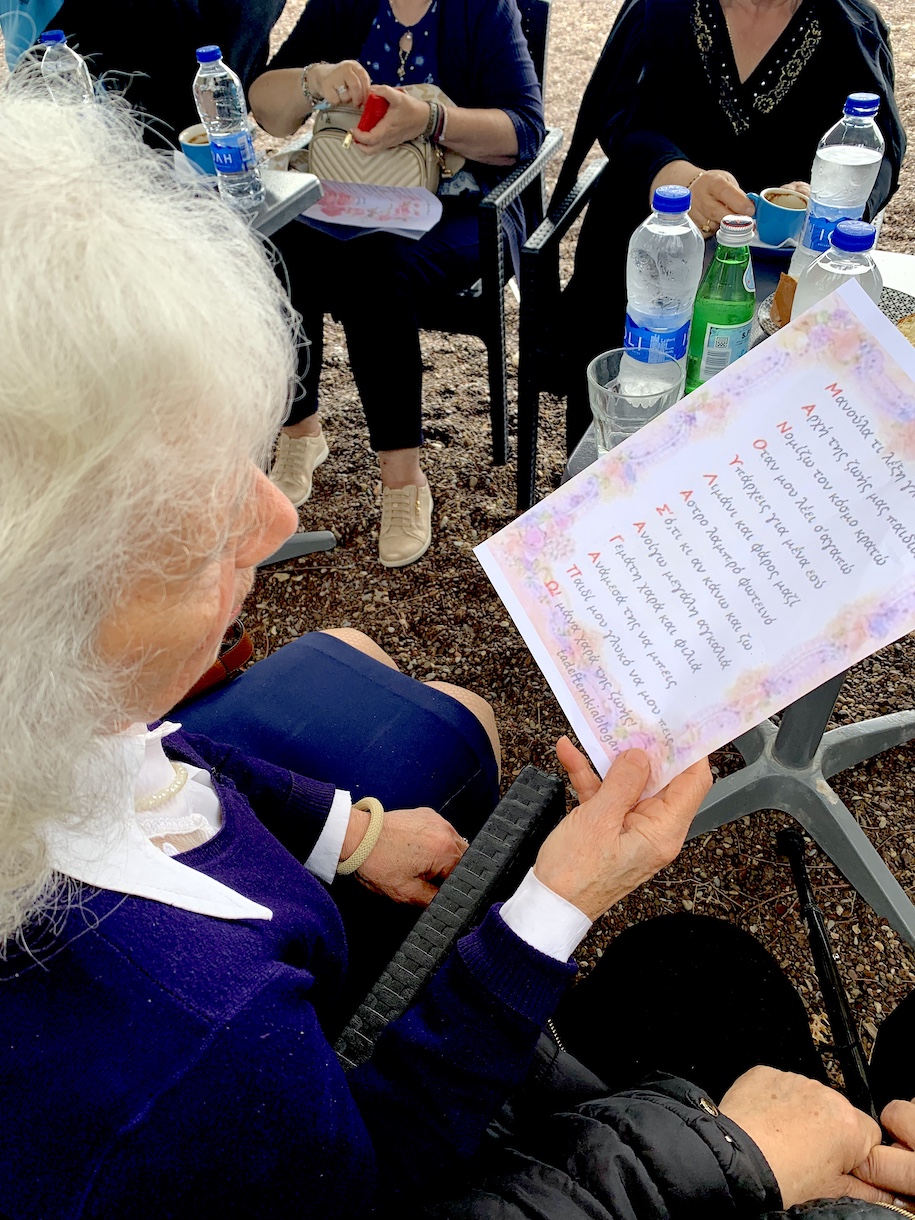 Μανούλα τι λέξη
Αρχή της ζωής μας παιδί
Νομίζω τον κόσμο κρατώ
Όταν μου λέει σ'αγαπώ
Υπάρχεις για μένα εσύ
Λιμάνι και φάρος μαζί
Άστρο λαμπρό φωτεινό
Σ ό,τι κι αν κάνω και ζω
Ανοίγω μεγάλη αγκαλιά
Γεμάτη χαρά και φιλιά
Ανάμεσά της να μπεις
Παιδί μου γλυκό να μου πεις
Ω! μάνα χαρά της ζωής!
tadefterakiablogar